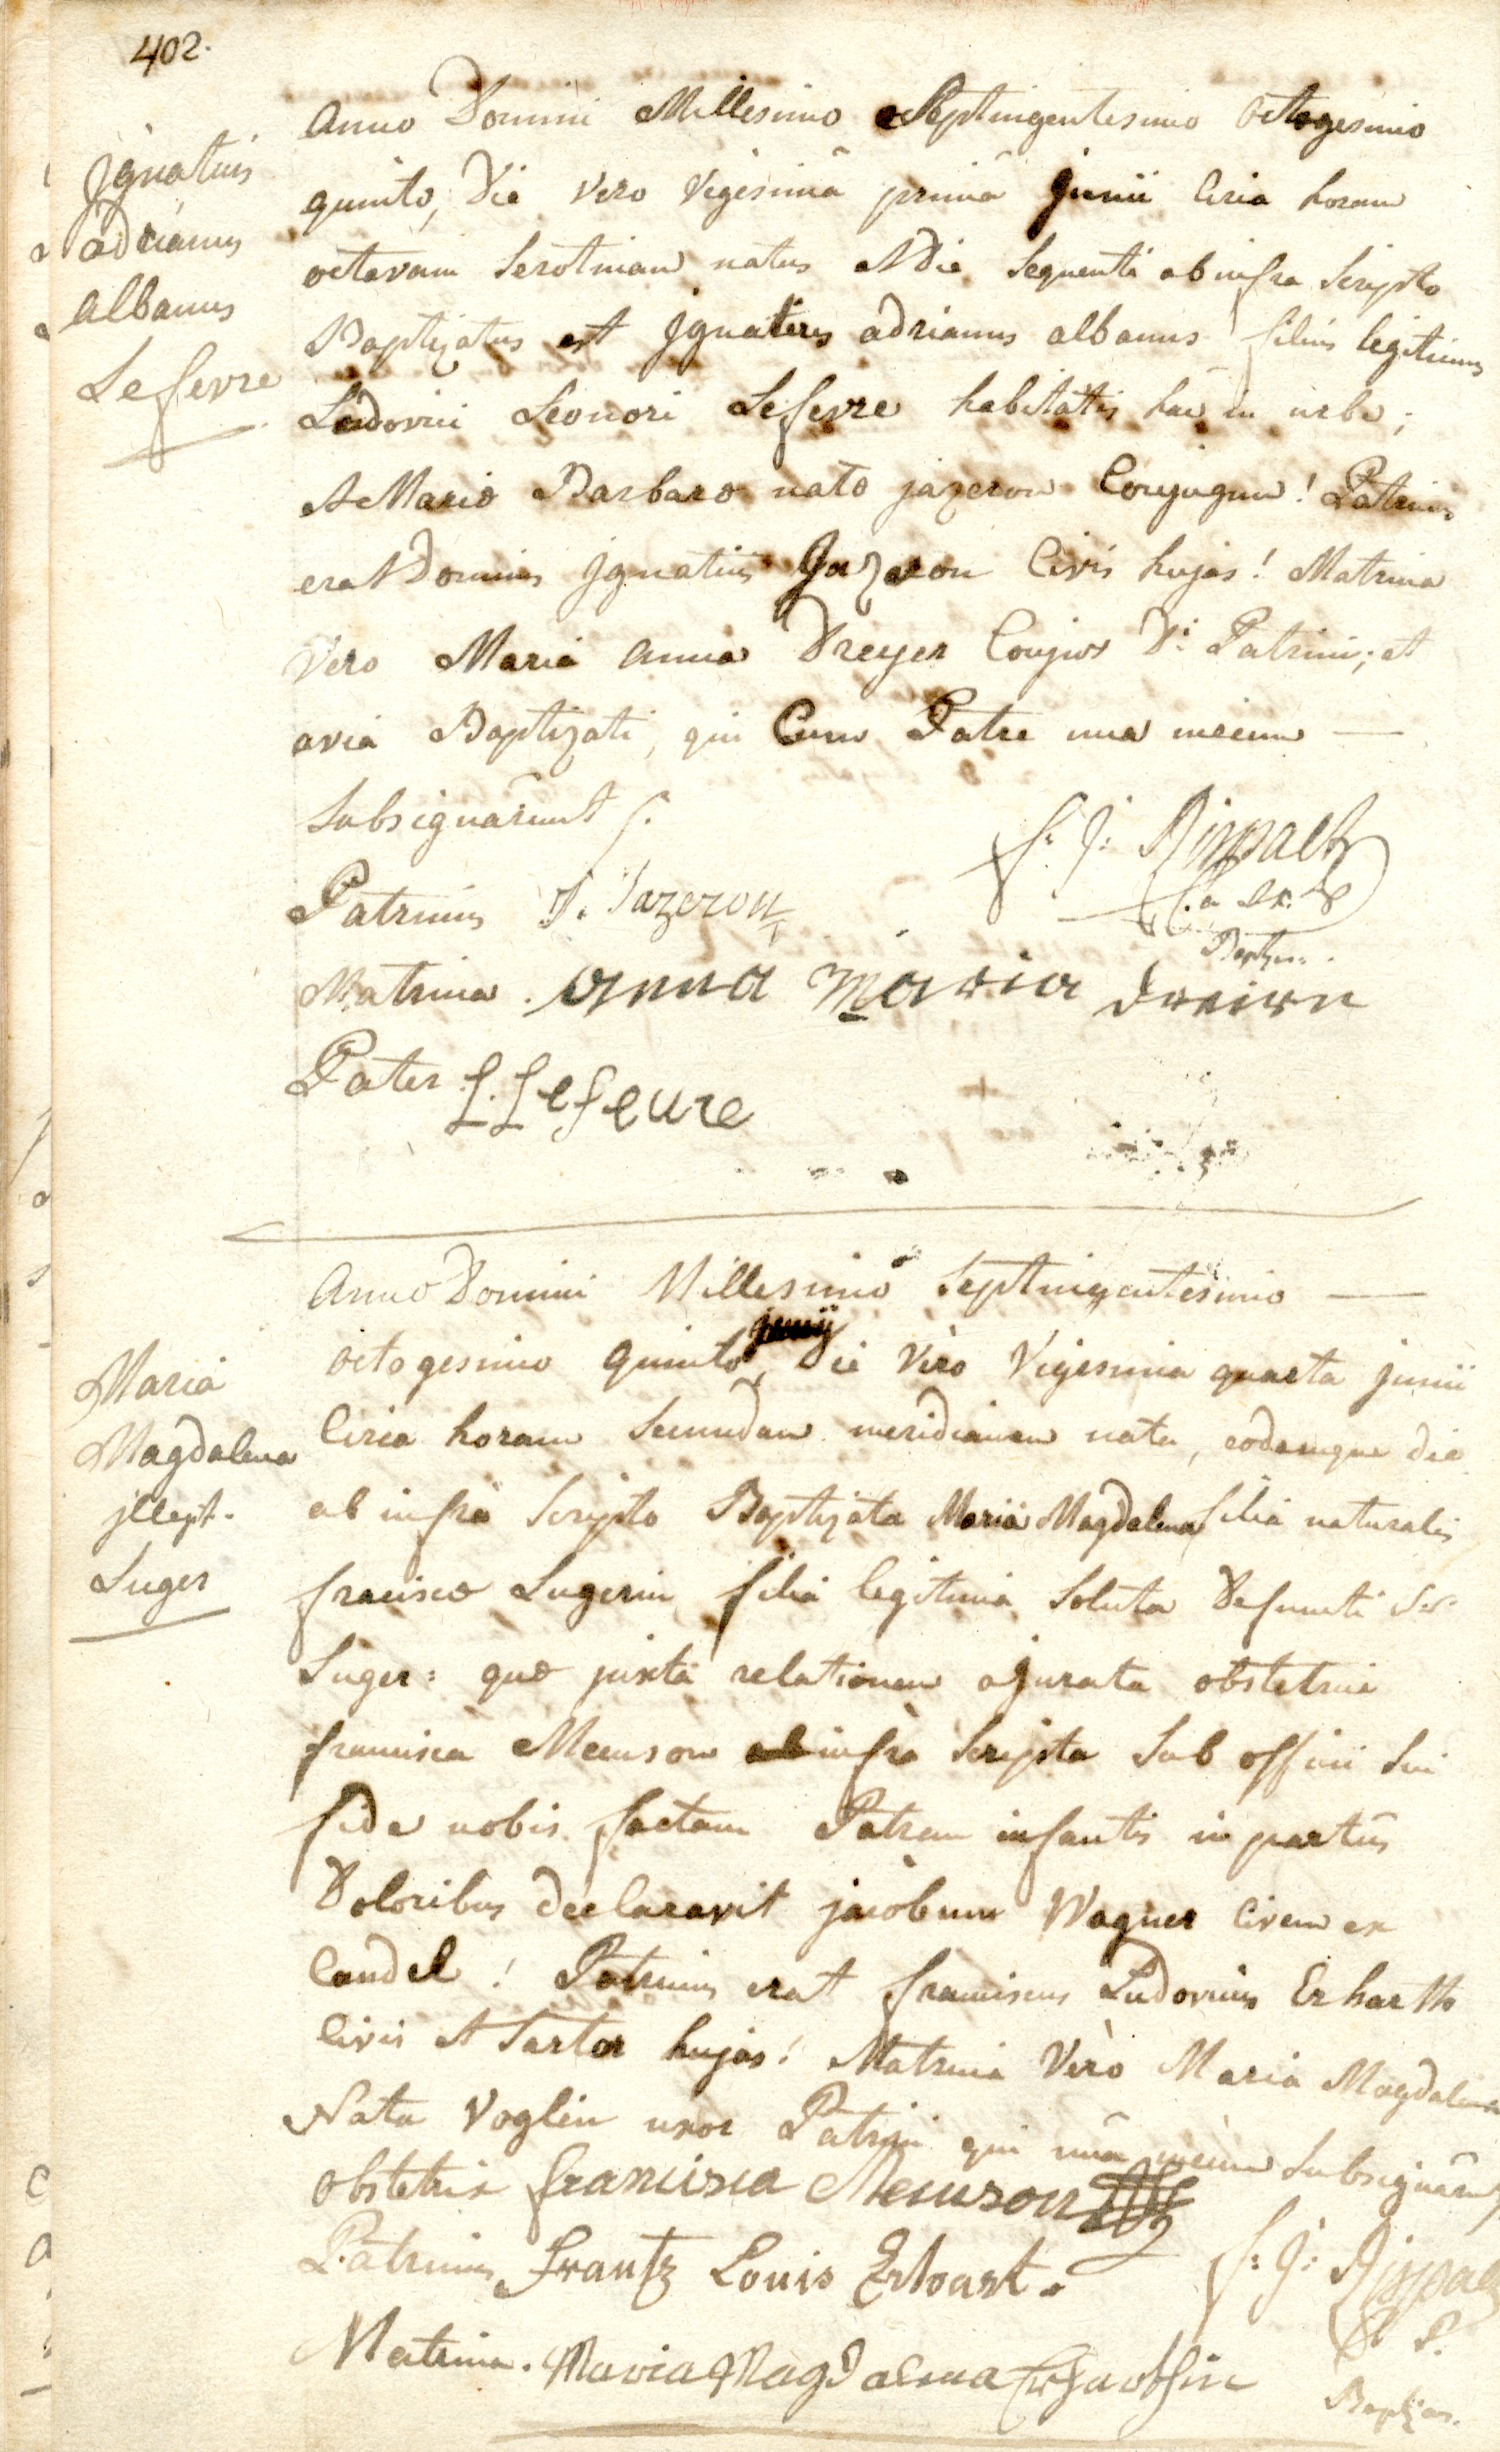 402.
Ignatius
adrianus
albanus
Lefevre
Anno Domini Millesimo Septingentesimo Octogesimo
quinto, Die vero vigesimâ primâ Junii Circa horam
octavam Serotinam natus et die Sequenti ab infra Scripto
Baptizatus est Ignatius adrianus albanus filius legitimus
Ludovici Leonori Lefevre habitatis hac in urbe;
et Maria Barbara nata jazeron Conjugum! Patrinus
erat Dominus Ignatius Jazeron Civis hujas! Matrina
Vero Maria Anna Dreyer Conjux Di Patrini; et
avia Baptizati, qui Cum Patre una mecum —
Subsignârunt
f: j: Rippach
Baptizans.
Patrinus J. Jazeron
Matrina. anna Maria dreiern
Pater L. Lefeure
Maria
Magdalena
illegit.
Luger
Anno Domini Millesimo Septingentesimo —
octogesimo quinto, Die Vero Vigesima quarta junii
Circa horam Secundam meridianam nata, eodemque die
ab infra Scripto Baptizata Maria Magdalena filia naturalis
francisca Lugerin filia legitima Soluta Defuncti
Luger: quæ juxta relationem a jurata obstetrice
francisca Meurson infra Scripta Sub officii Sui
fide nobis factam Patrem infantis in partûs
Doloribus declaravit jacobum Wagner Civem ex
Candel! Patrinus erat franciscus Ludovicus Erharth
Civis et Sartor hujas! Matrina Verò Maria Magdalena
Nata Voglin uxor Patrini qui unâ mecum Subsignârunt
obstetrix francisca Meurson
Patrinus Frantz Louis Erhart.
f: j: Rippach
Matrina. Maria Magdalena Erhardtin
Baptizans.